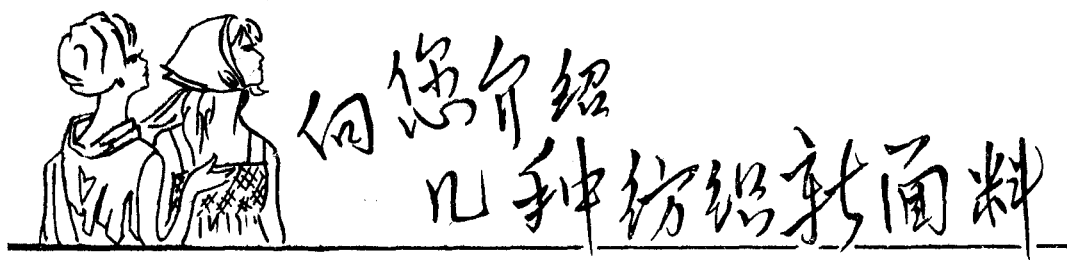 向您介绍
几种纺织新面料